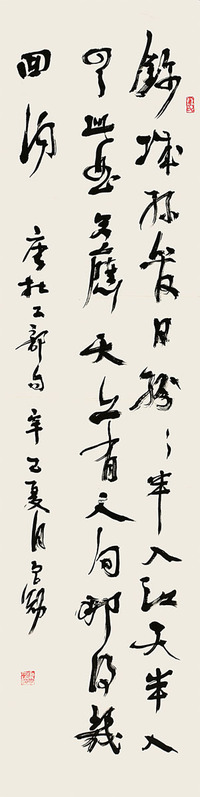 錦城絲管日紛〻半入江天半入
雲此曲只應天上有人間那得幾
回闻
唐杜工部句辛乙夏月